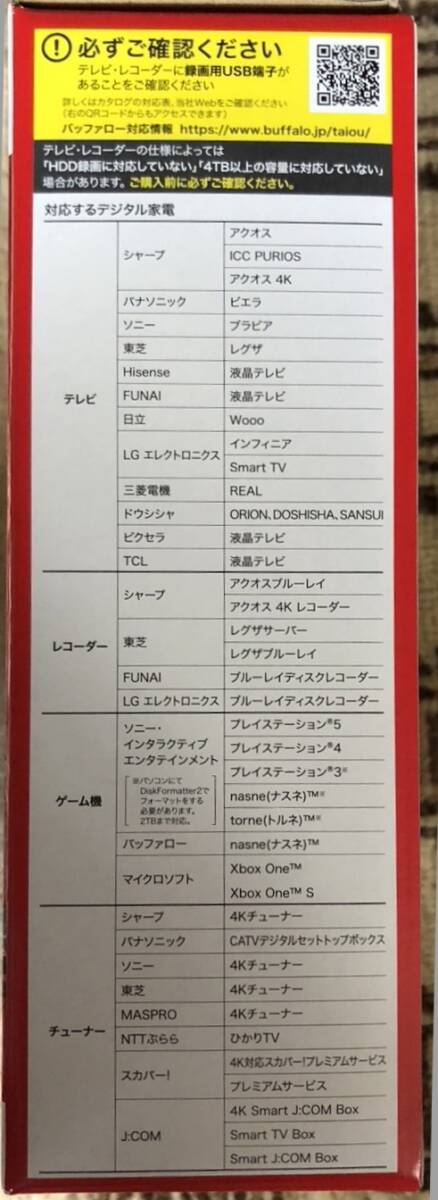 ! 必ずご確認ください
テレビ・レコーダーに録画用USB端子が
あることをご確認ください
詳しくはカタログの対応表、当社Webをご確認ください
(右のQRコードからもアクセスできます)
バッファロー対応情報 https://www.buffalo.jp/taiou/
テレビ・レコーダーの仕様によっては
「HDD録画に対応していない」「4TB以上の容量に対応していない」
場合があります。ご購入前に必ずご確認ください。
対応するデジタル家電
テレビ
シャープ
アクオス
ICC PURIOS
アクオス 4K
パナソニック ビエラ
ソニー ブラビア
東芝 レグザ
Hisense 液晶テレビ
FUNAI 液晶テレビ
日立 Wooo
LG エレクトロニクス
インフィニア
Smart TV
三菱電機 REAL
ドウシシャ ORION、DOSHISHA、SANSUI
ピクセラ 液晶テレビ
TCL 液晶テレビ
レコーダー
シャープ
アクオスブルーレイ
アクオス 4K レコーダー
東芝
レグザサーバー
レグザブルーレイ
FUNAI ブルーレイディスクレコーダー
LG エレクトロニクス ブルーレイディスクレコーダー
ゲーム機
ソニー・
インタラクティブ
エンタテインメント
※パソコンにて
DiskFormatter2で
フォーマットをする
必要があります。
2TBまで対応。
プレイステーション®5
プレイステーション®4
プレイステーション®3※
nasne(ナスネ)™※
torne(トルネ)™※
バッファロー nasne(ナスネ)™
マイクロソフト
Xbox One™
Xbox One™ S
チューナー
シャープ 4Kチューナー
パナソニック CATVデジタルセットトップボックス
ソニー 4Kチューナー
東芝 4Kチューナー
MASPRO 4Kチューナー
NTTぷらら ひかりTV
スカパー!
4K対応スカパー!プレミアムサービス
プレミアムサービス
J:COM
4K Smart J:COM Box
Smart TV Box
Smart J:COM Box